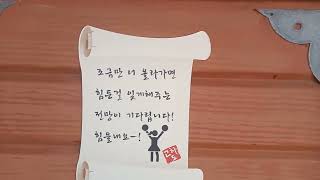 조금만 더 올라가면
힘든걸 잊게해주는
전망이 기다립니다!
힘들내요~!